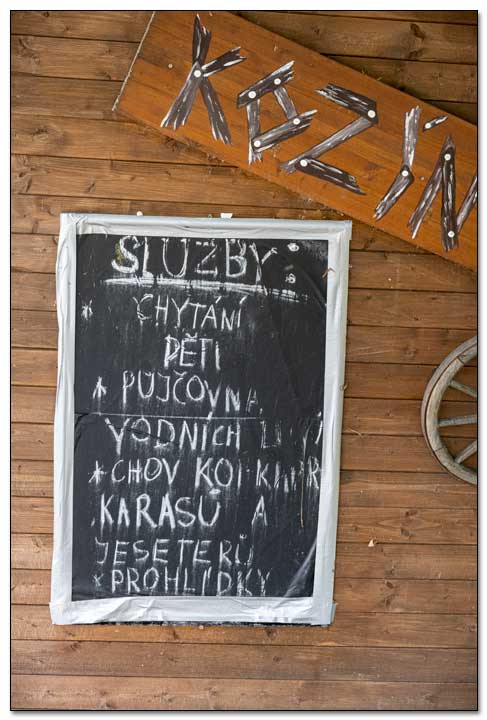 KOZÍ
SLUŽBY:
* CHYTÁNÍ
DĚTI
* PUJČOVNA
VODNÍCH
* CHOV KOI
KARASŮ A
JESETERŮ
* PROHLÍDKY